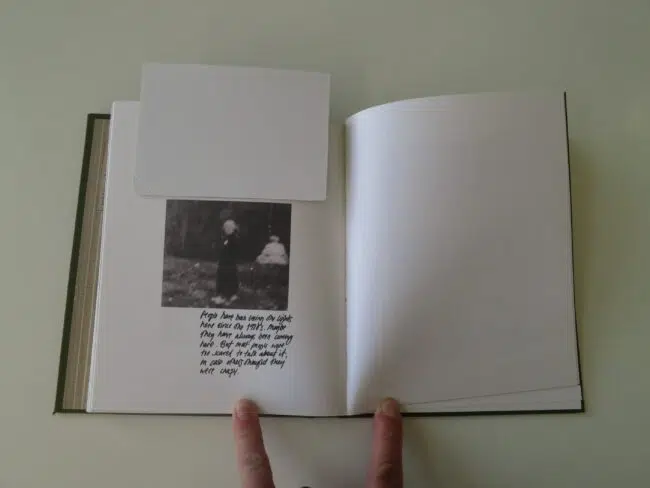 People have been seeing the lights
here since the 1930's. Maybe
they have always been coming
here. But most people were
too scared to talk about it,
in case others thought they
were crazy.